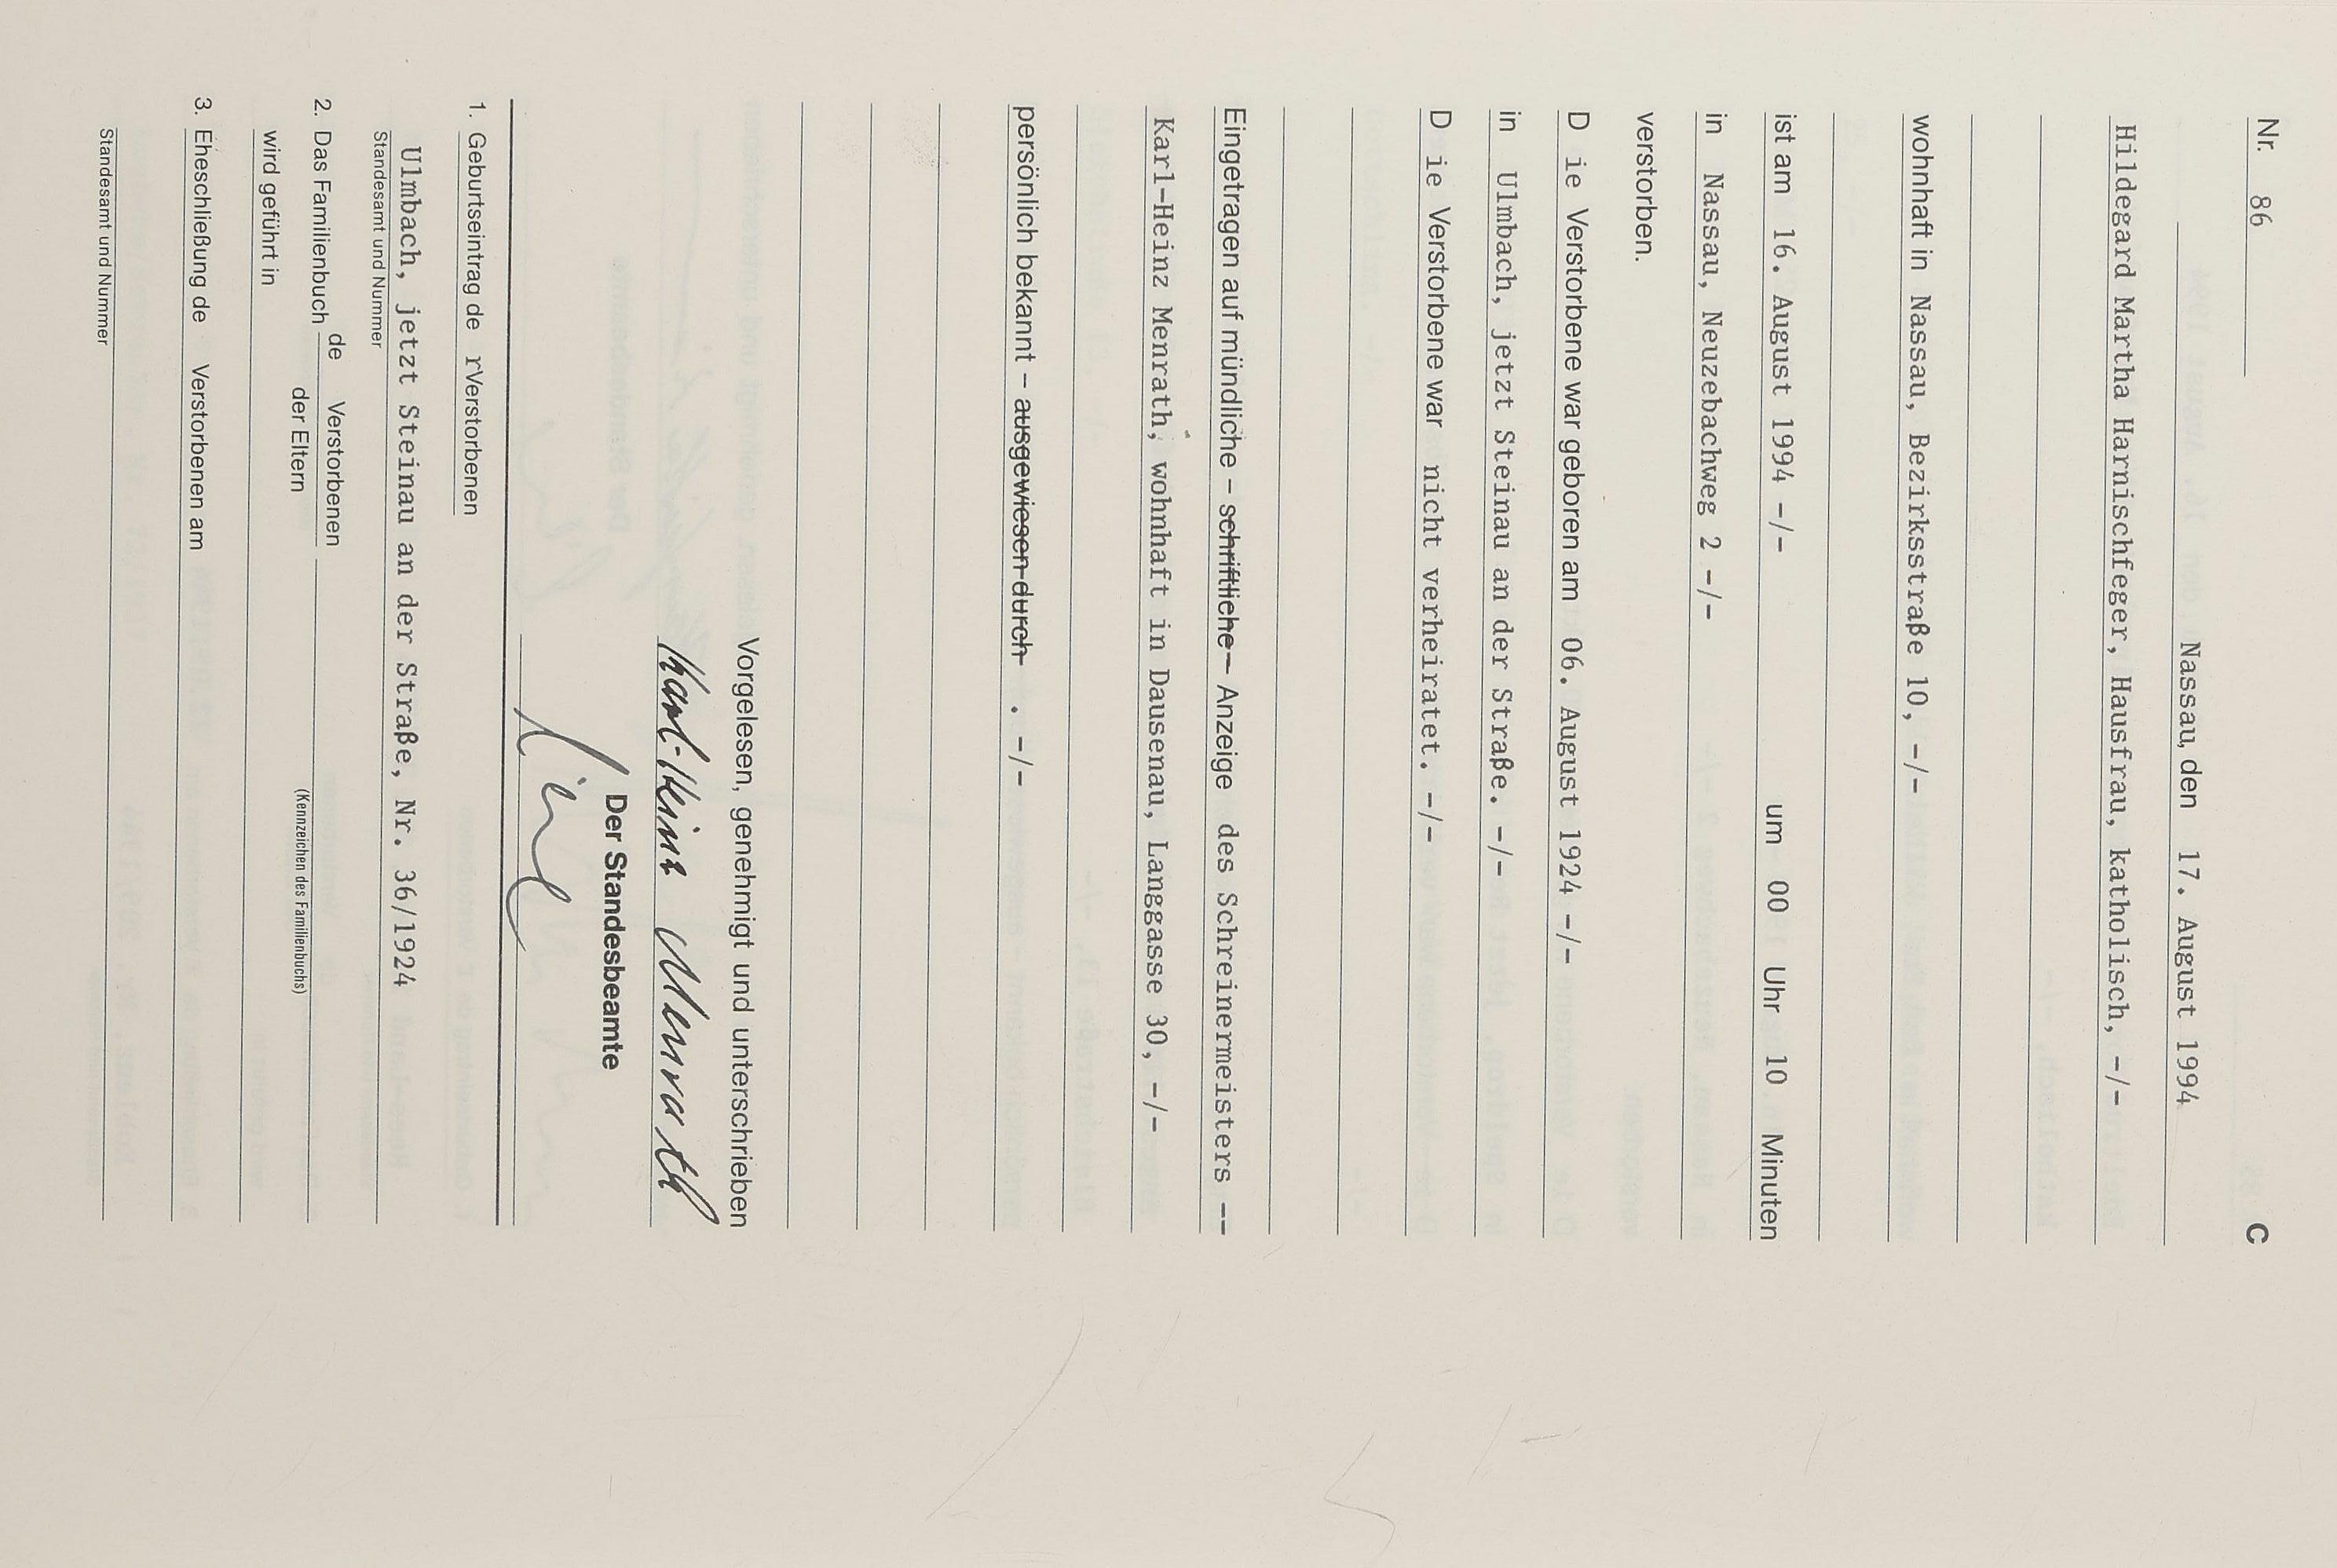 Nr. 86 C
Nassau, den 17. August 1994
Hildegard Martha Harnischfeger, Hausfrau, katholisch, -/-
wohnhaft in Nassau, Bezirksstraße 10, -/-
ist am 16. August 1994 -/- um 00 Uhr 10 Minuten
in Nassau, Neuzebachweg 2 -/-
verstorben.
D ie Verstorbene war geboren am 06. August 1924 -/-
in Ulmbach, jetzt Steinau an der Straße. -/-
D ie Verstorbene war nicht verheiratet. -/-
Eingetragen auf mündliche – schriftliche – Anzeige des Schreinermeisters --
Karl-Heinz Menrath, wohnhaft in Dausenau, Langgasse 30, -/-
persönlich bekannt – ausgewiesen durch . -/-
Vorgelesen, genehmigt und unterschrieben
Karl-Heinz Menrath
Der Standesbeamte
1. Geburtseintrag de rVerstorbenen
Ulmbach, jetzt Steinau an der Straße, Nr. 36/1924
Standesamt und Nummer
2. Das Familienbuch de Verstorbenen
der Eltern
wird geführt in (Kennzeichen des Familienbuchs)
3. Eheschließung de Verstorbenen am
Standesamt und Nummer